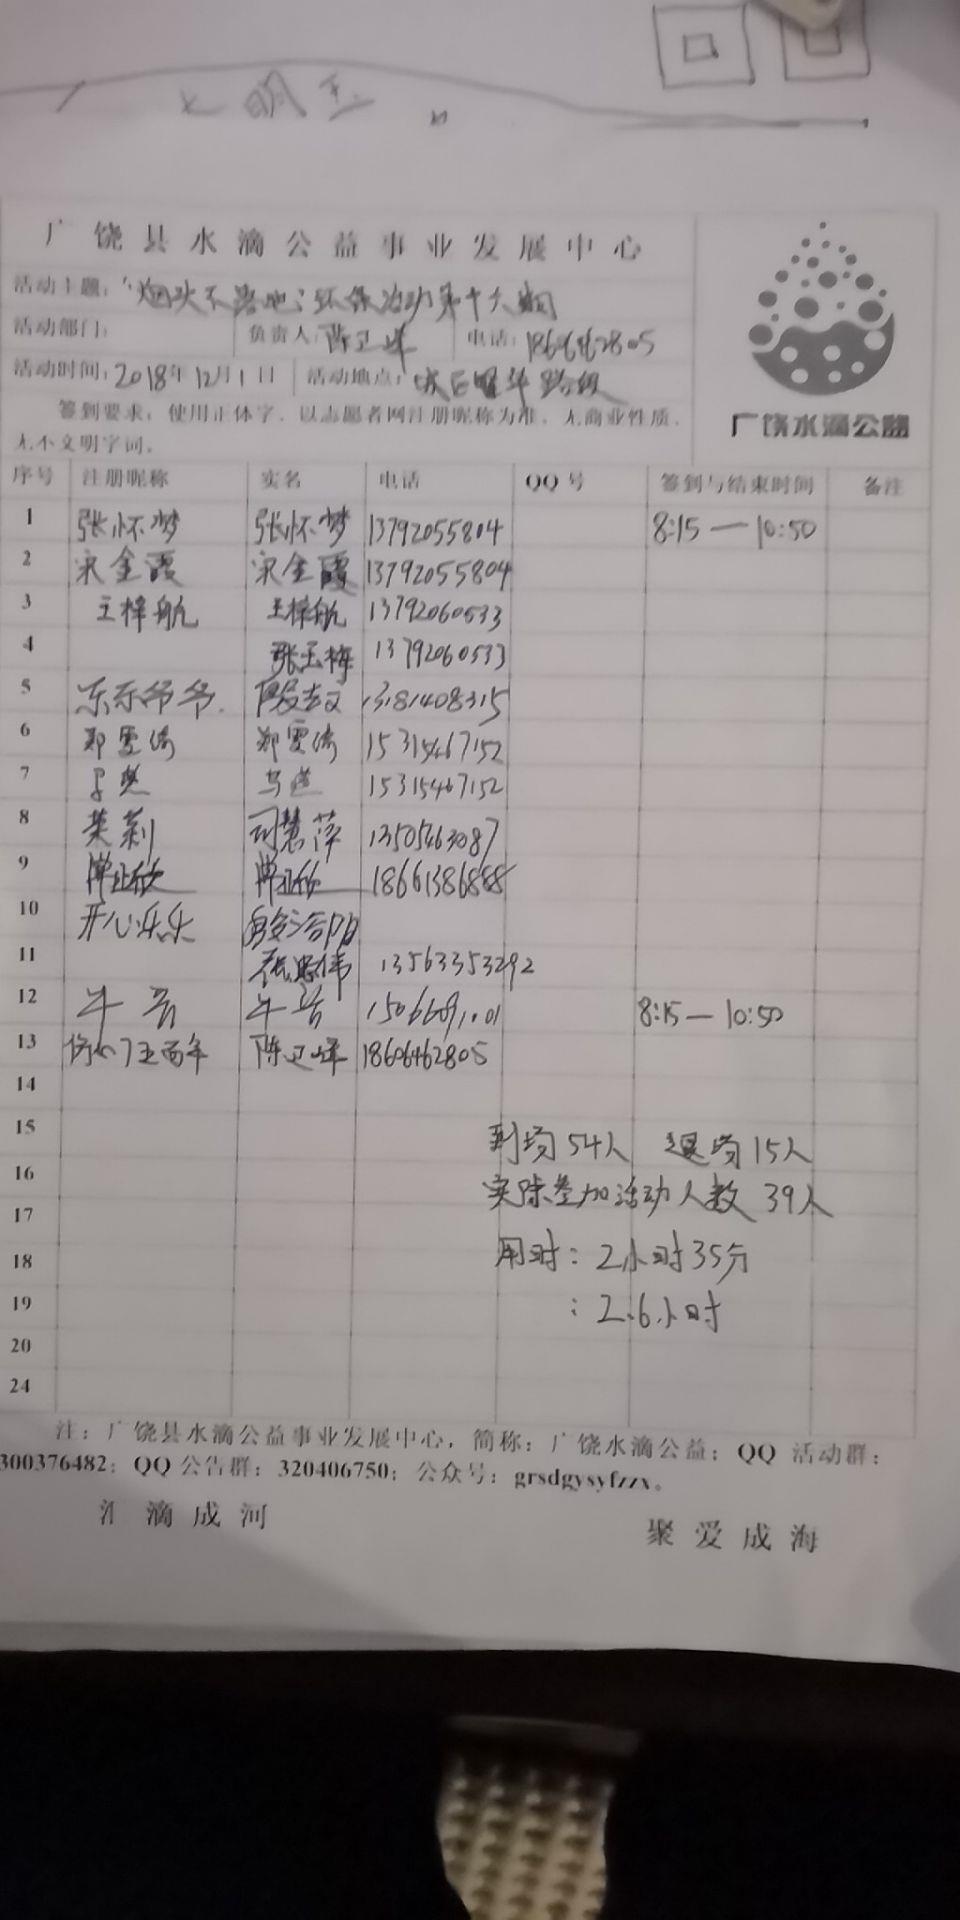 广饶县水滴公益事业发展中心
活动主题：“烟头不落地；环保活动第十六期
活动部门： 负责人：陈卫峰 电话：18606462805
活动时间：2018年12月1日 活动地点： 路段
签到要求：使用正体字，以志愿者网注册昵称为准，无商业性质、
无不文明字词。
广饶水滴公益
序号 注册昵称 实名 电话 QQ号 签到与结束时间 备注
1 张怀梦 张怀梦 13792055804 8:15—10:50
2 宋金霞 宋金霞 13792055804
3 王梓航 王梓航 13792060533
4 张玉梅 13792060533
5 东东爷爷 13181408315
6 郑雯倩 郑雯倩 15315467152
7 15315467152
8 茉莉 司慧萍 13505463087
9 18661386888
10 开心乐乐
11 13563353292
12 8:15—10:50
13 陈卫峰 18606462805
14
15 到场54人 退场15人
16 实际参加活动人数 39人
17
18 用时：2小时35分
19 ：2.6小时
20
24
注：广饶县水滴公益事业发展中心，简称：广饶水滴公益；QQ 活动群：
300376482；QQ 公告群：320406750；公众号：grsdgysyfzzx。
汇滴成河 聚爱成海